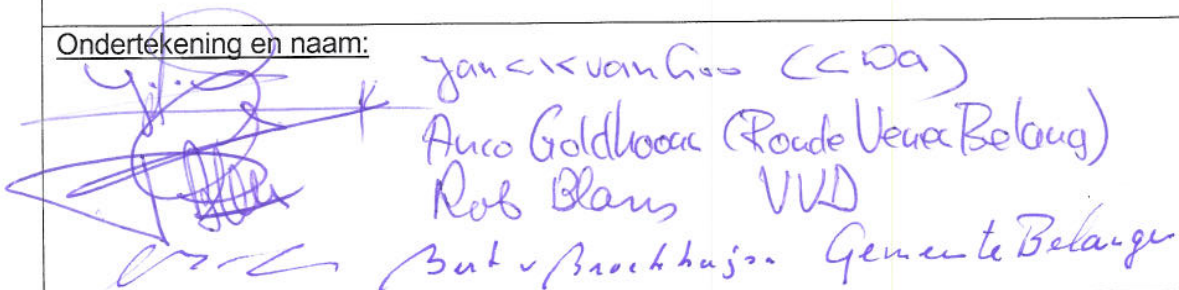 Ondertekening en naam:
van (CDA)
Anco Goldhoorn (Ronde Venen Belang)
Rob Blans VVD
Bert v Broekhuijsen Gemeente Belangen